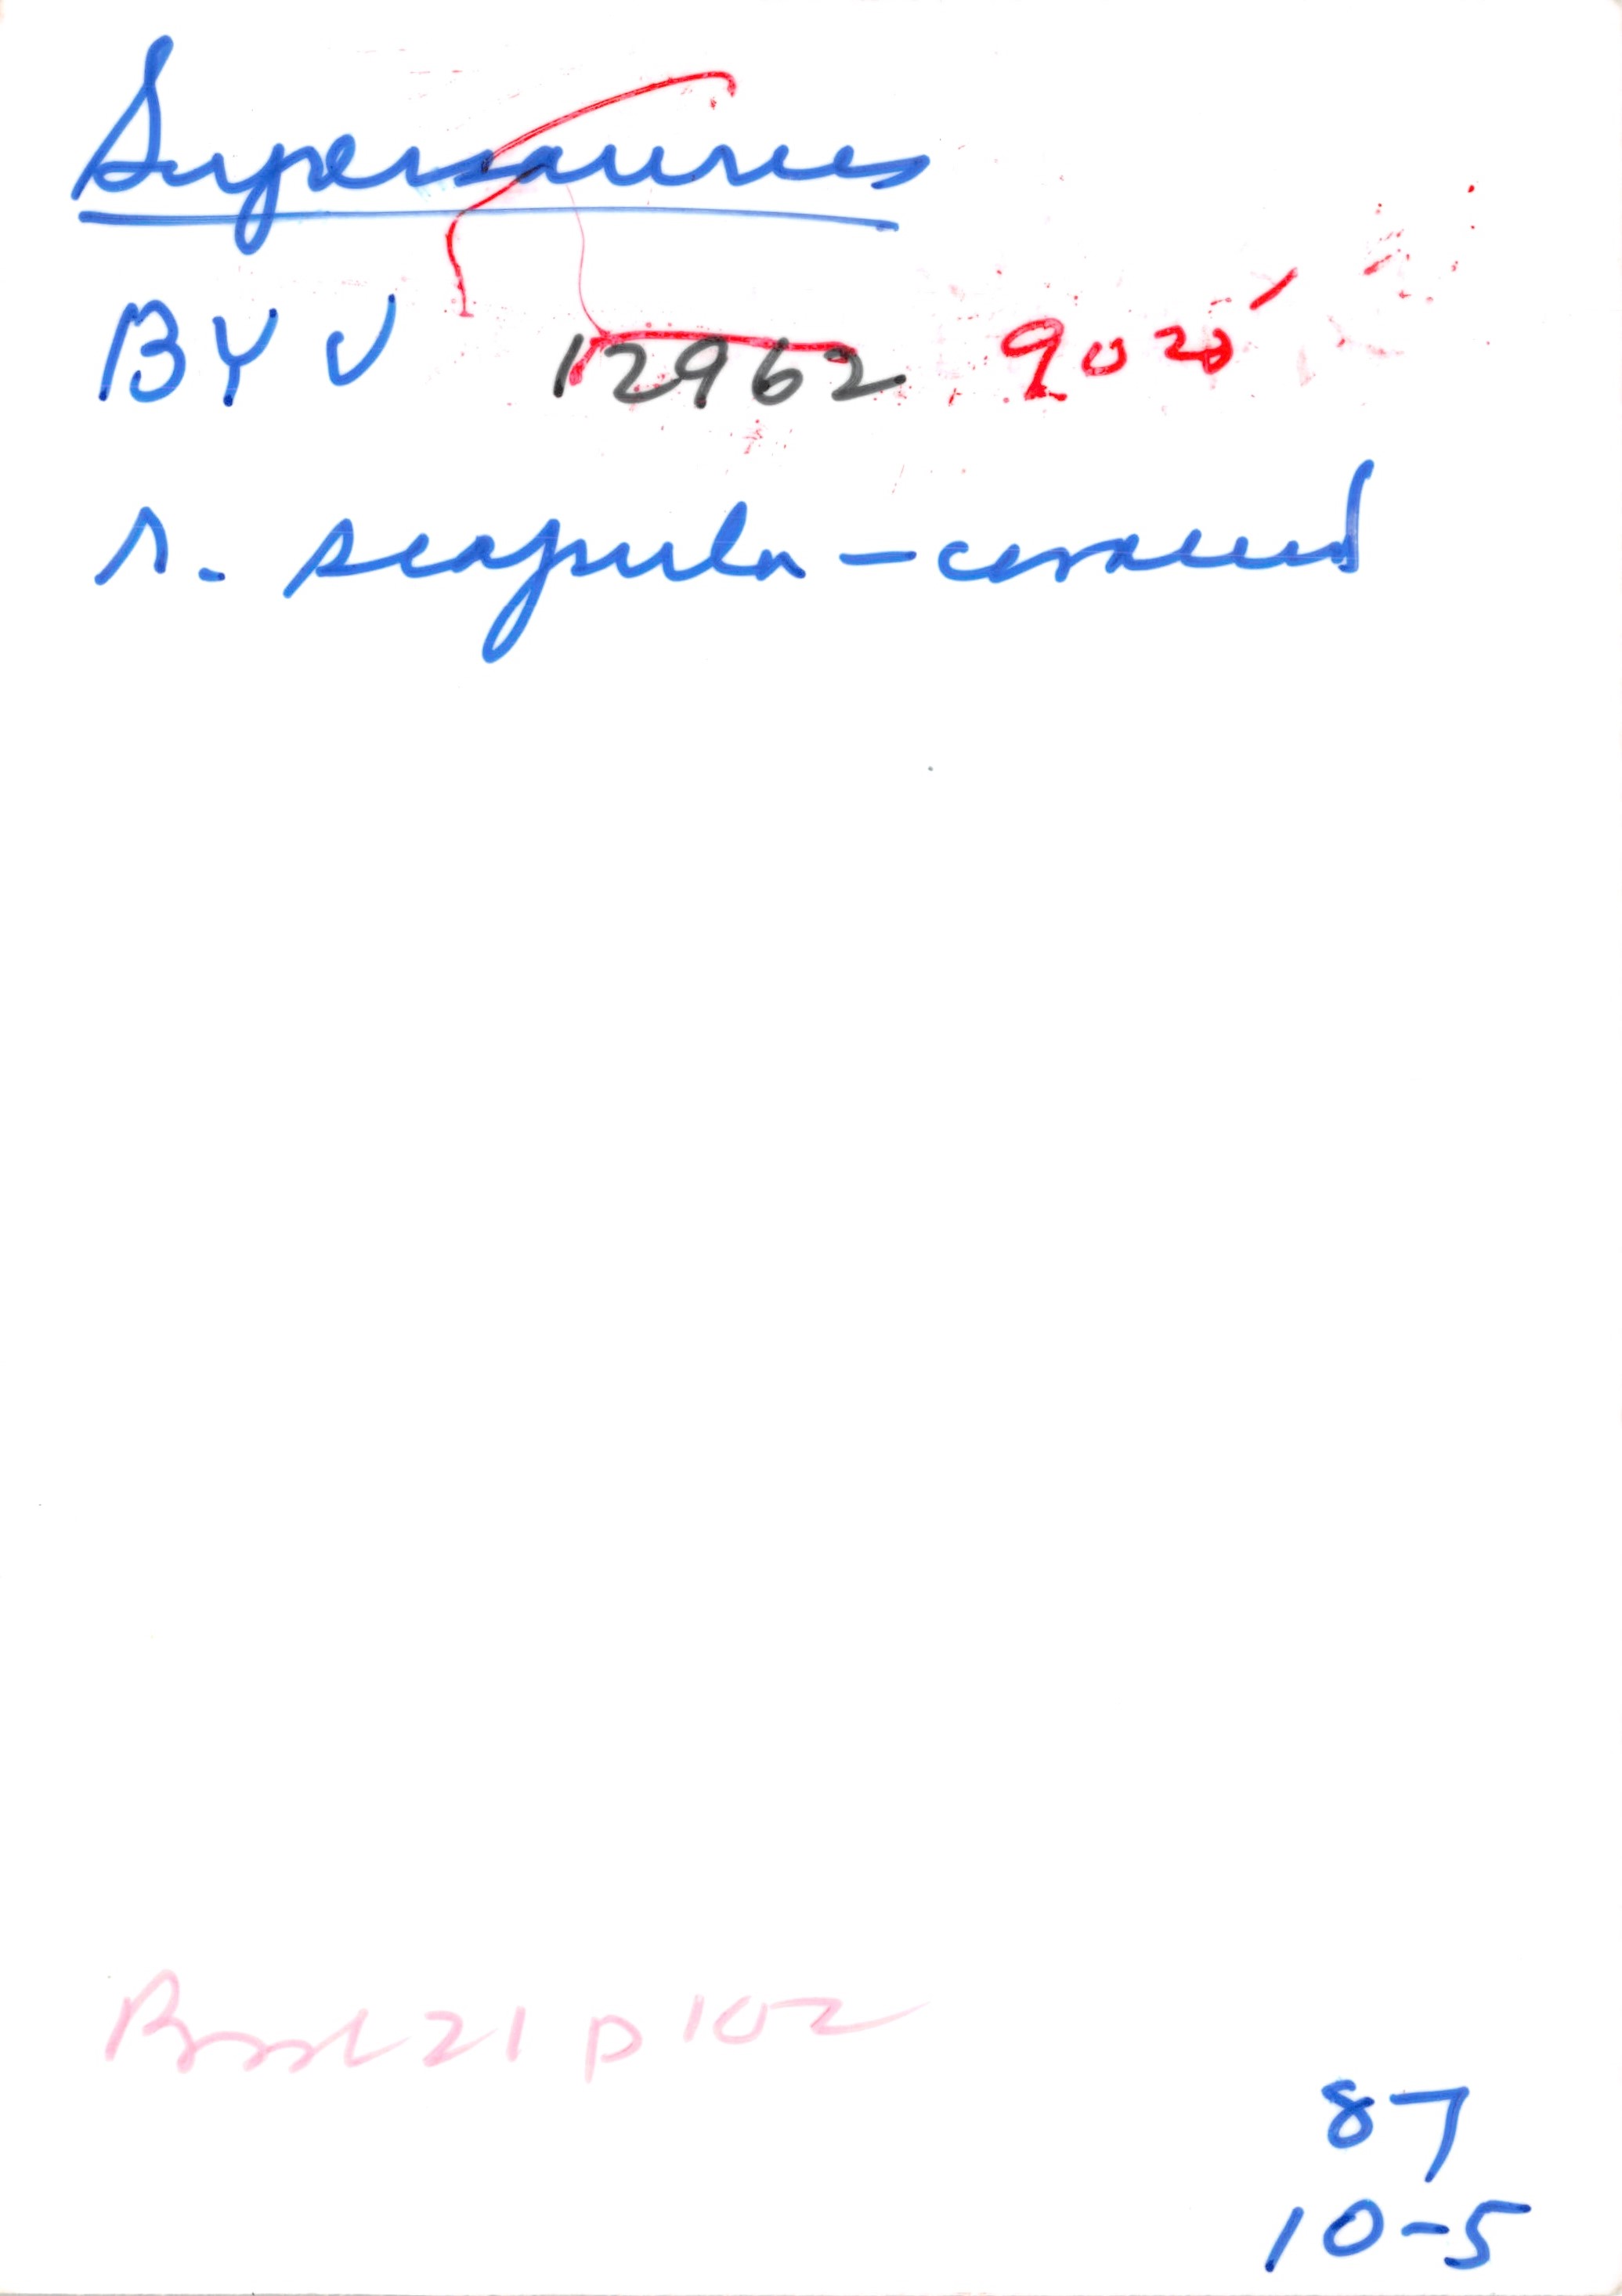 Supersaurus
BYU 12962 9025
r. scapula-coracoid
Book 21 p 102
87
10-5